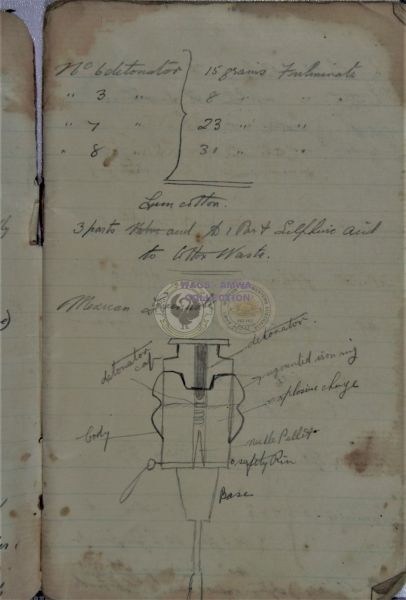 No 6 detonator 15 grains Fulminate
" 3 " 8 " "
" 7 " 23 " "
" 8 " 31 " "
Gun cotton.
3 parts and 1 Part Sulphuric acid
to Cotton Waste.
WAGS AMWA
COLLECTION
Mexican
detonator.
detonator
cap
segmented iron ring
explosive charge
body
needle Pellet
safety Pin
Base